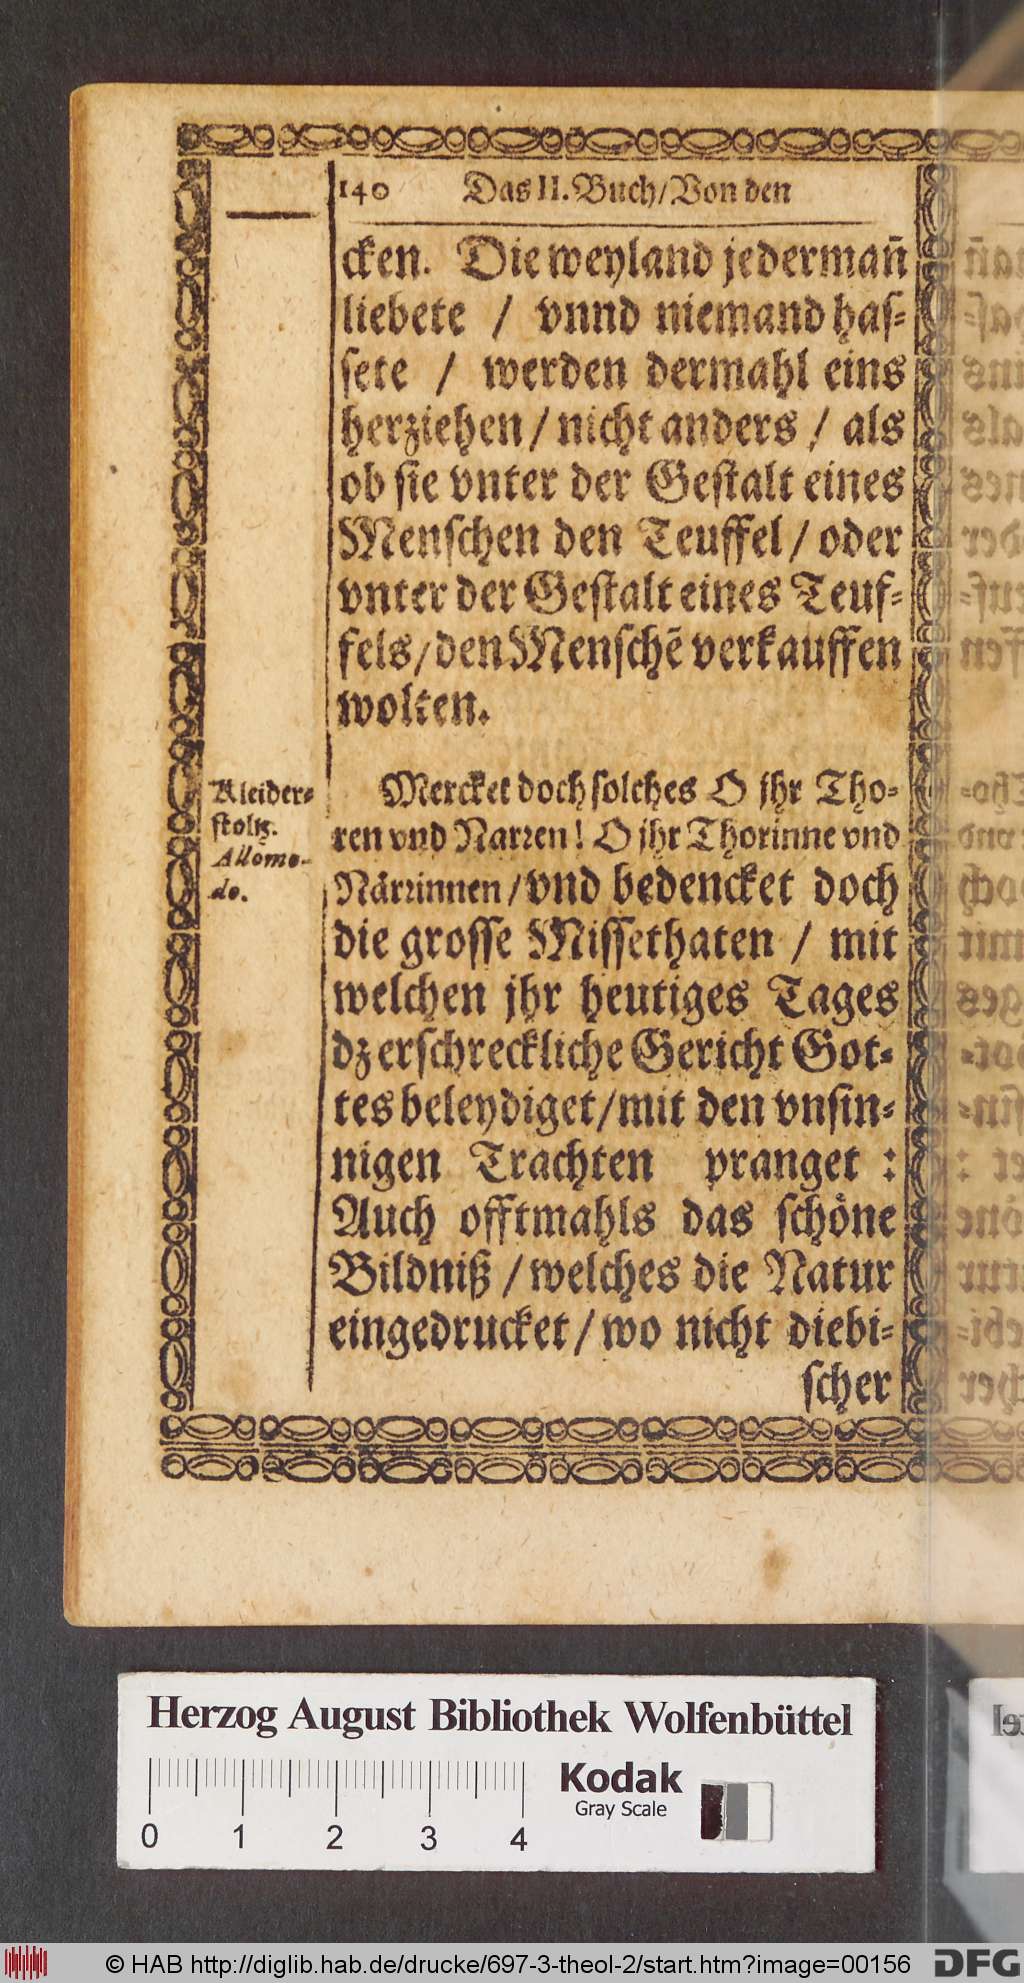 140 Das II. Buch/Von den
cken. Die weyland jederman̄
liebete / vnnd niemand has-
sete / werden dermahl eins
herziehen/nicht anders / als
ob sie vnter der Gestalt eines
Menschen den Teuffel/oder
vnter der Gestalt eines Teuf-
fels/den Menschē verkauffen
wolten.
Kleider-
stoltz.
Allomo-
do.
Mercket doch solches O jhr Tho-
ren vnd Narren! O jhr Thorinne vnd
Närrinnen/vnd bedencket doch
die grosse Missethaten / mit
welchen jhr heutiges Tages
dz erschreckliche Gericht Got-
tes beleydiget/mit den vnsin-
nigen Trachten pranget :
Auch offtmahls das schöne
Bildniß/welches die Natur
eingedrucket/wo nicht diebi-
scher
Herzog August Bibliothek Wolfenbüttel
0 1 2 3 4
Kodak
Gray Scale
© HAB http://diglib.hab.de/drucke/697-3-theol-2/start.htm?image=00156
DFG